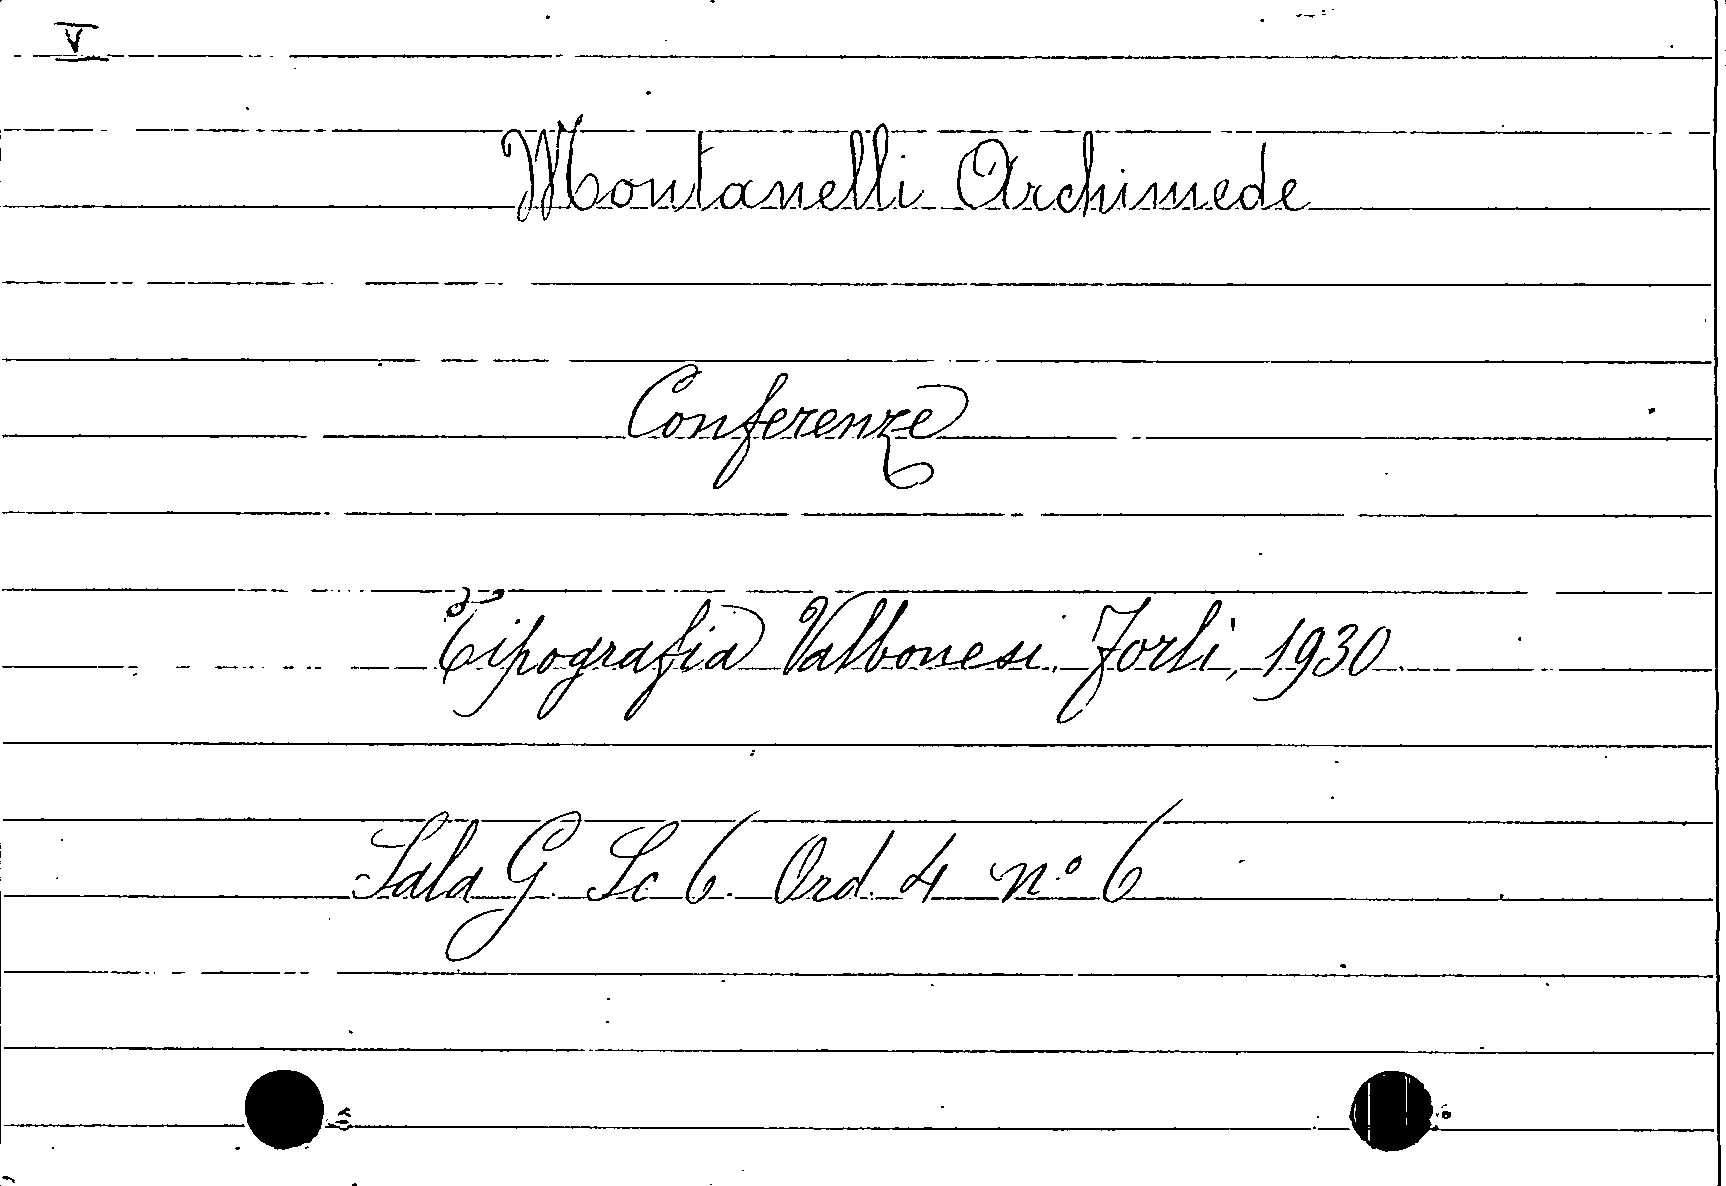 V
Montanelli Archimede
Conferenze
Tipografia Valbonesi. Forlì, 1930.
Sala G. Sc 6. Ord. 4 nº 6